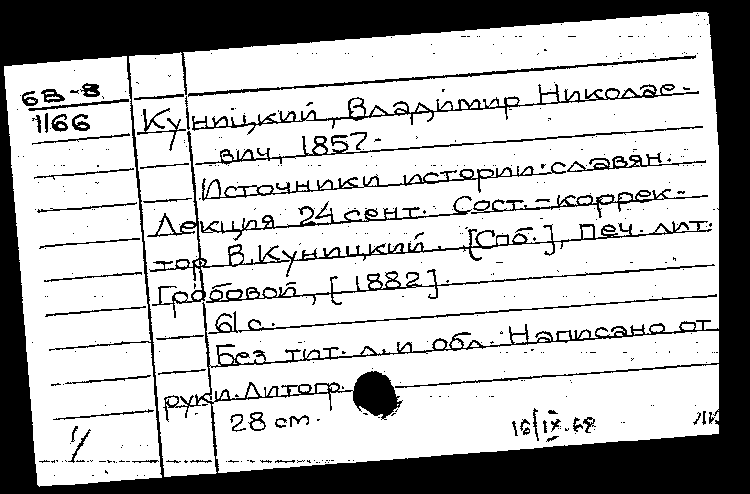 6В-8
1166
Куницкий, Владимир Николае-
вич, 1857-
Источники истории славян.
Лекция 24 сент. Сост.-коррек-
тор В. Куницкий. [Спб.], Печ. лит.
Гробовой, [1882].
61 с.
Без тит. л. и обл. Написано от
руки. Литогр.
28 см.
16/IX.68